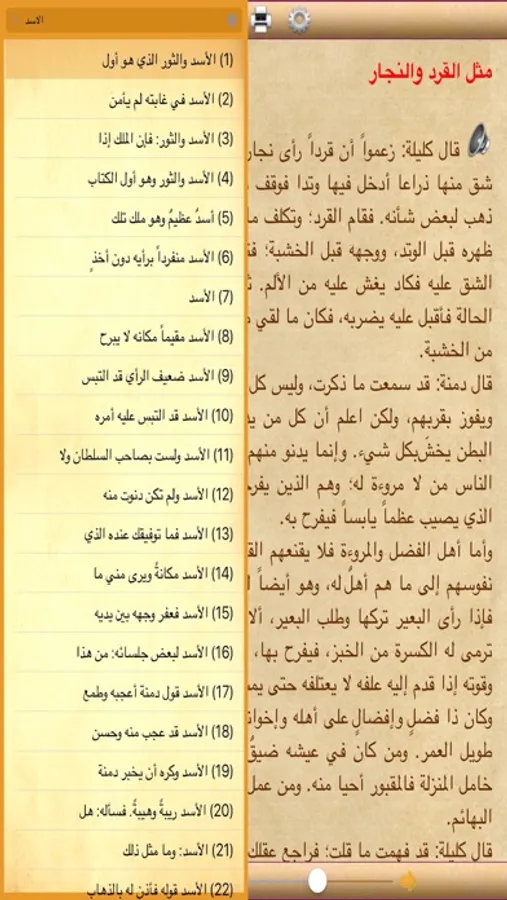 الاسد
(1) الأسد والثور الذي هو أول
(2) الأسد في غابته لم يأمن
(3) الأسد والثور: فإن الملك إذا
(4) الأسد والثور وهو أول الكتاب
(5) أسدٌ عظيمٌ وهو ملك تلك
(6) الأسد منفرداً برأيه دون أخذٍ
(7) الأسد
(8) الأسد مقيماً مكانه لا يبرح
(9) الأسد ضعيف الرأي قد التبس
(10) الأسد قد التبس عليه أمره
(11) الأسد ولست بصاحب السلطان ولا
(12) الأسد ولم تكن دنوت منه
(13) الأسد فما توفيقك عنده الذي
(14) الأسد مكانةً ويرى مني ما
(15) الأسد فعفر وجهه بين يديه
(16) الأسد لبعض جلسائه: من هذا
(17) الأسد قول دمنة أعجبه وطمع
(18) الأسد قد عجب منه وحسن
(19) الأسد وكره أن يخبر دمنة
(20) الأسد ريبةً وهيبةً. فسأله: هل
(21) الأسد: وما مثل ذلك
(22) الأسد قوله فأذن له بالذهاب
مثل القرد والنجار
قال كليلة: زعموا أن قرداً رأى نجار
شق منها ذراعا أدخل فيها وتدا فوقف
ذهب لبعض شأنه. فقام القرد؛ وتكلف ما
ظهره قبل الوتد، ووجهه قبل الخشبة؛
الشق عليه فكاد يغش عليه من الألم.
الحالة فأقبل عليه يضربه، فكان ما لقي
من الخشبة.
قال دمنة: قد سمعت ما ذكرت، وليس كل
ويفوز بقربهم، ولكن اعلم أن كل من
البطن يخشَبكل شيء. وإنما يدنو منهم
الناس من لا مروءة له؛ وهم الذين
الذي يصيب عظماً يابساً فيفرح به.
وأما أهل الفضل والمروءة فلا يقنعهم
نفوسهم إلى ما هم أهل له، وهو أيضاً
فإذا رأى البعير تركها وطلب البعير، ألا
ترمى له الكسرة من الخبز، فيفرح بها،
وقوته إذا قدم إليه علفه لا يعتلفه حتى
وكان ذا فضلٍ وإفضالٍ على أهله
طويل العمر. ومن كان في عيشه ضيقٌ
خامل المنزلة فالمقبور أحيا منه. ومن عمل
البهائم.
قال كليلة: قد فهمت ما قلت؛ فراجع عقلك